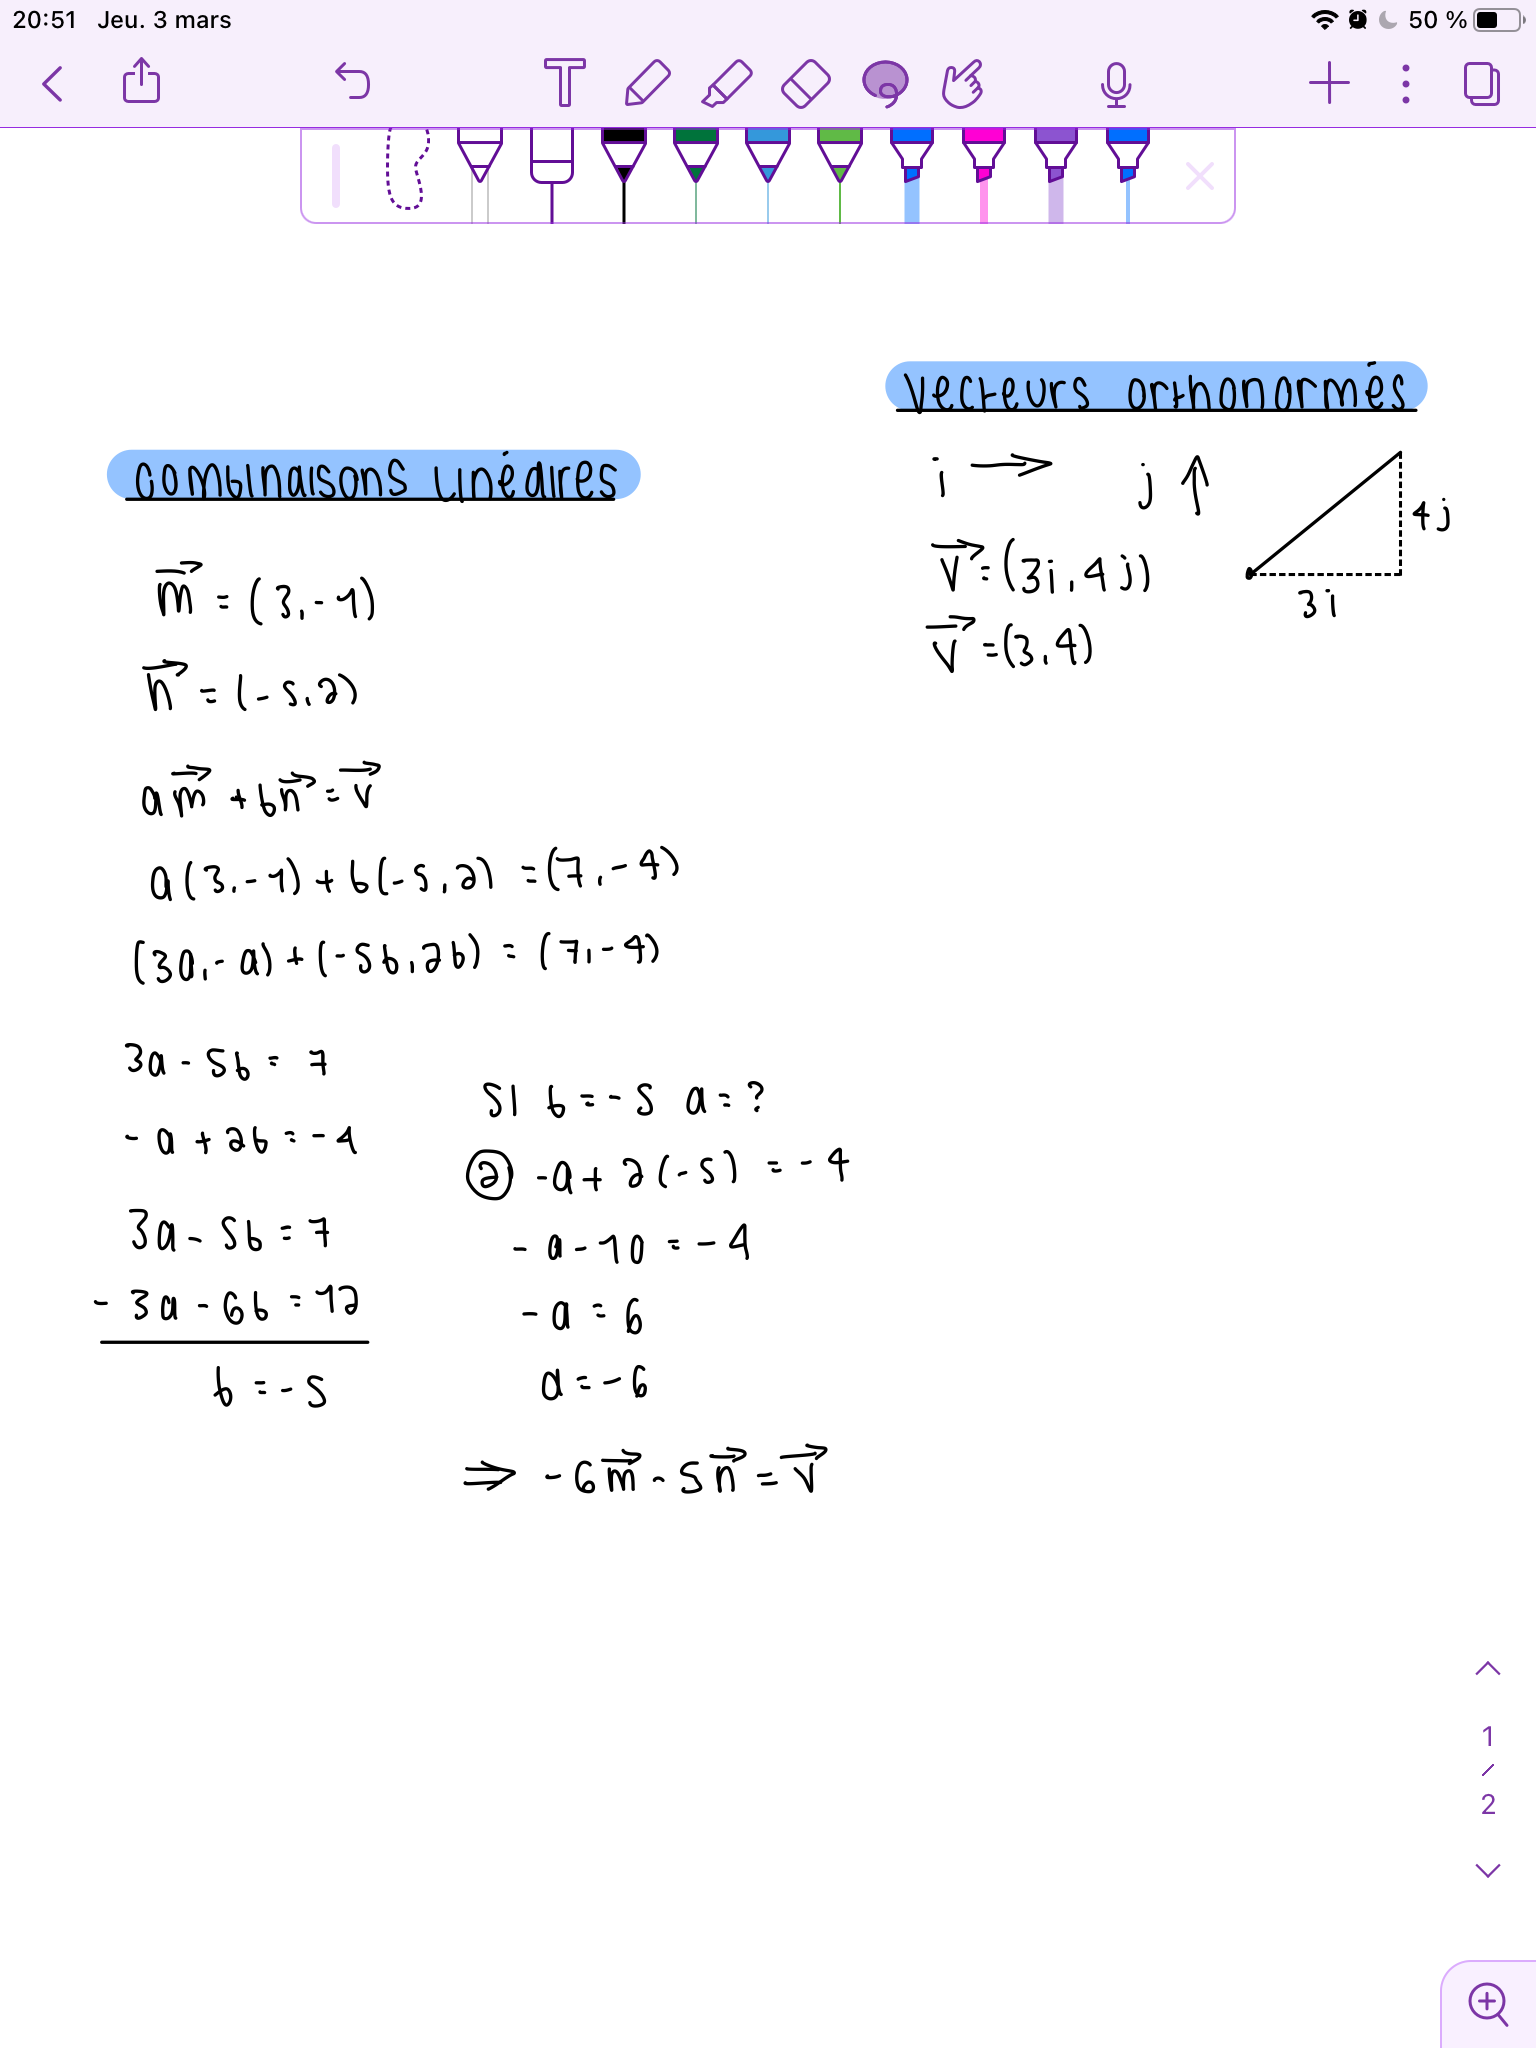 20:51 Jeu. 3 mars
50 %
T
vecteurs orthonormés
i → j ↑
4j
v⃗ = (3i, 4j)
3i
v⃗ = (3, 4)
combinaisons linéaires
m⃗ = (3, -1)
n⃗ = (-5, 2)
am⃗ + bn⃗ = v⃗
a(3, -1) + b(-5, 2) = (7, -4)
(3a, -a) + (-5b, 2b) = (7, -4)
3a - 5b = 7
-a + 2b = -4
3a - 5b = 7
- 3a - 6b = 12
b = -5
si b = -5 a = ?
② -a + 2(-5) = -4
-a - 10 = -4
-a = 6
a = -6
⇒ -6m⃗ - 5n⃗ = v⃗
1
/
2